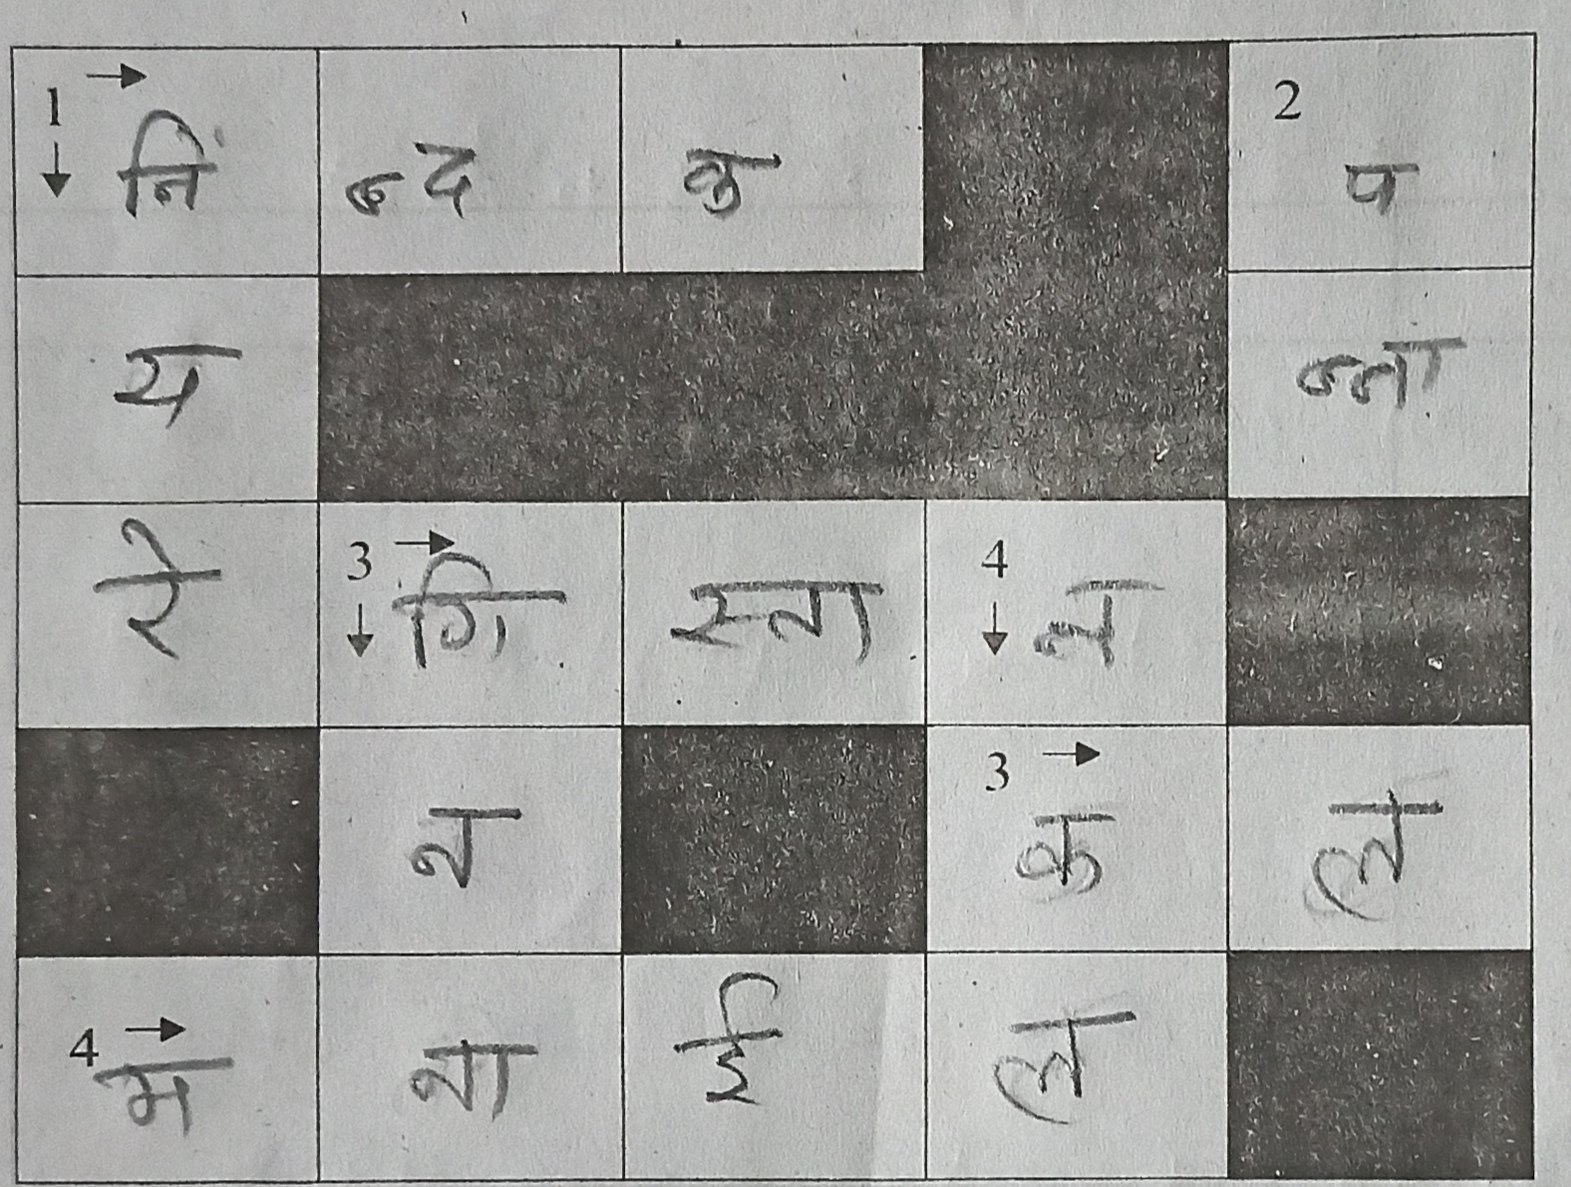 1 → ↓ निं न्द क 2 प
य न्ना
रे 3 → ↓ गि स्ता 4 ↓ न
न 3 → क ल
4 → म ना ई ल